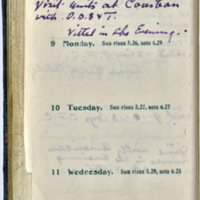 Visit units at
with D.D.S & T.
Vittel in the Evening.
9 Monday. Sun rises 5.26, sets 6.29
10 Tuesday. Sun rises 5.27, sets 6.27
11 Wednesday. Sun rises 5.29, sets 6.25